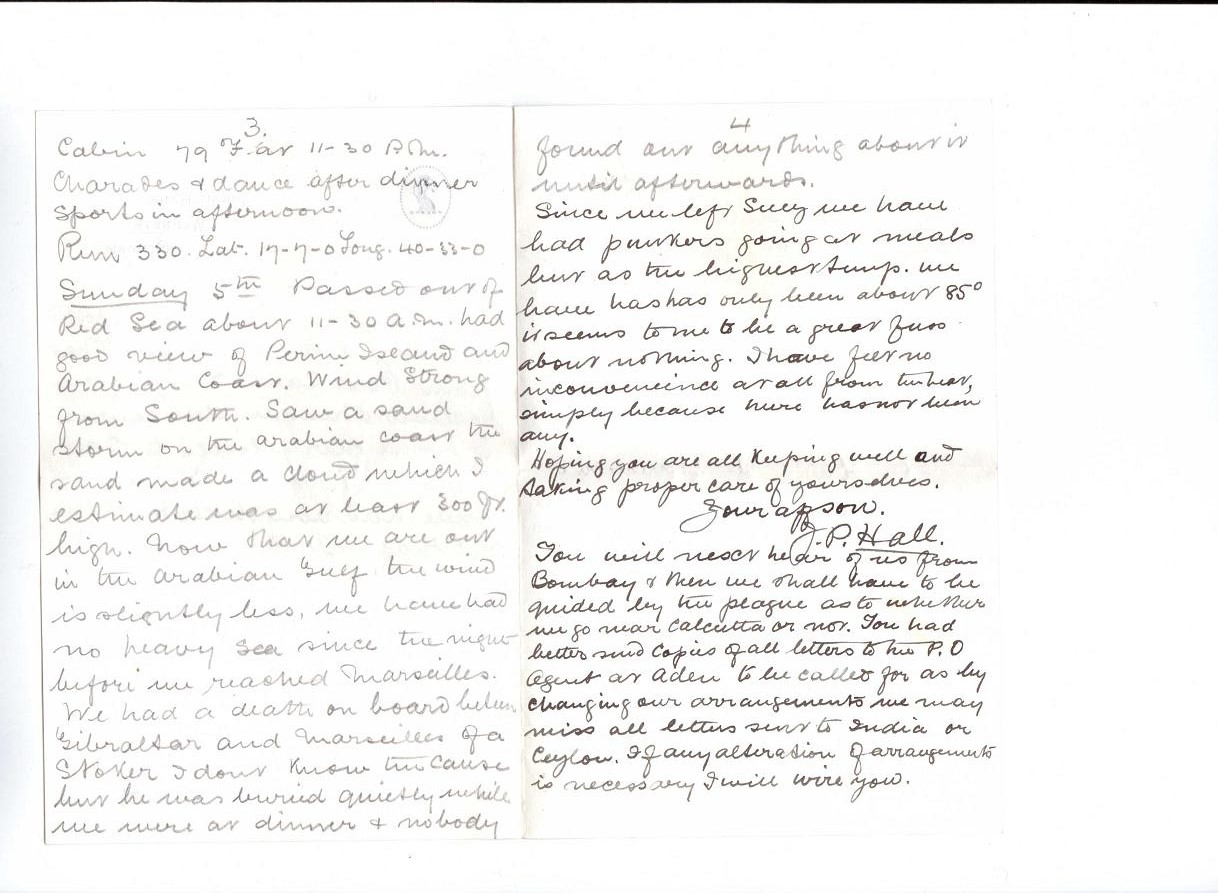 3.
Cabin 79 F. at 11-30 P.M.
Charades & dance after dinner
Sports in afternoon.
Run 330. Lat. 17-7-0 Long. 40-33-0
Sunday 5th Passed out of
Red Sea about 11-30 A.M. had
good view of Perim Island and
Arabian Coast. Wind Strong
from South. Saw a sand
storm on the arabian coast the
sand made a cloud which I
estimate was at least 300 ft.
high. Now that we are out
in the arabian Gulf the wind
is slightly less, we have had
no heavy sea since the night
before we reached Marseilles.
We had a death on board between
Gibraltar and Marseilles of a
Stoker I dont know the cause
but he was buried quietly while
we were at dinner & nobody
4
found out anything about it
until afterwards.
Since we left Suez we have
had punkers going at meals
but as the highest temp. we
have has has only been about 85°
it seems to me to be a great fuss
about nothing. I have felt no
inconvenience at all from the heat,
simply because there has not been
any.
Hoping you are all keeping well and
taking proper care of yourselves.
Your aff son.
J.P. Hall.
You will next hear of us from
Bombay & then we shall have to be
guided by the plague as to whether
we go near Calcutta or not. You had
better send copies of all letters to the P.O
Agent at Aden to be called for as by
changing our arrangements we may
miss all letters sent to India or
Ceylon. If any alteration of arrangements
is necessary I will wire you.